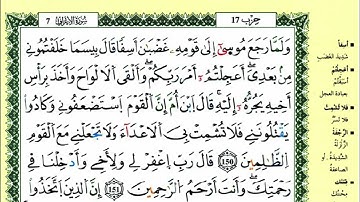 7 سُورَةُ الأَعْرَاف
حزب 17
وَلَمَّا رَجَعَ مُوسَىٰ إِلَىٰ قَوْمِهِ غَضْبَٰنَ أَسِفًا قَالَ بِيسَمَا خَلَفْتُمُونِي
مِنْ بَعْدِي أَعَجِلْتُمُ أَمْرَ رَبِّكُمْ وَأَلْقَى الْأَلْوَاحَ وَأَخَذَ بِرَأْسِ
أَخِيهِ يَجُرُّهُ إِلَيْهِ قَالَ ابْنَ أُمَّ إِنَّ الْقَوْمَ اسْتَضْعَفُونِي وَكَادُوا
يَقْتُلُونَنِي فَلَا تُشْمِتْ بِيَ الْأَعْدَاءَ وَلَا تَجْعَلْنِي مَعَ الْقَوْمِ
الظَّٰلِمِينَ 150 قَالَ رَبِّ اغْفِرْ لِي وَلِأَخِي وَأَدْخِلْنَا فِي
رَحْمَتِكَ وَأَنْتَ أَرْحَمُ الرَّٰحِمِينَ 151 إِنَّ الَّذِينَ اتَّخَذُوا
أسفا
شديد الغضب
أعجلتم
فلا تشمت
فلا تسر
الرجفة
الزلزلة
الشديدة أو
الصاعقة
فتنتك
محنتك